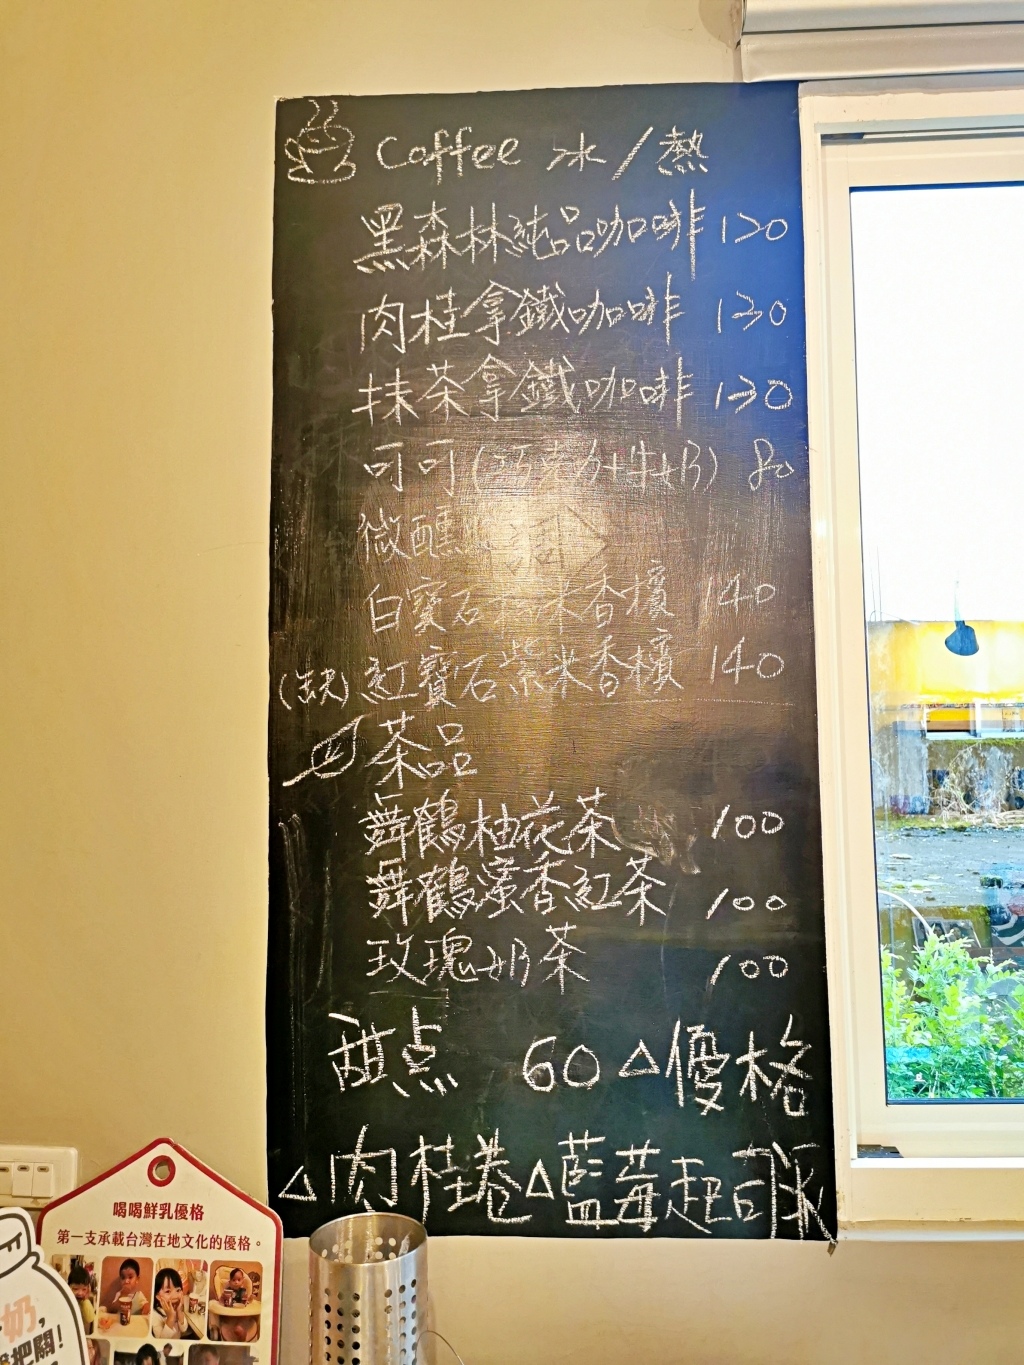 Coffee 冰/熱
黑森林純品咖啡 120
肉桂拿鐵咖啡 130
抹茶拿鐵咖啡 130
可可(巧克力+牛奶) 80
微醺 調
白寶石 米香檳 140
(缺)紅寶石紫米香檳 140
茶品
舞鶴柚花茶 100
舞鶴蜜香紅茶 100
玫瑰奶茶 100
甜点 60 △優格
△肉桂卷△藍莓起司派
喝喝鮮乳優格
第一支承載台灣在地文化的優格。
奶,
把關!